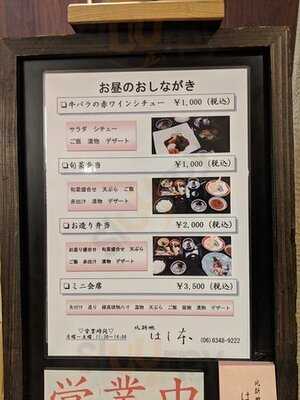 お昼のおしながき
❏牛バラの赤ワインシチュー ￥1,000 (税込)
サラダ シチュー
ご飯 漬物 デザート
❏旬菜弁当 ￥1,000 (税込)
旬菜盛合せ 天ぷら ご飯
赤出汁 漬物 デザート
❏お造り弁当 ￥2,000 (税込)
お造り盛合せ 旬菜盛合せ 天ぷら
ご飯 赤出汁 漬物 デザート
❏ミニ会席 ￥3,500 (税込)
先付け 造り 温物 天ぷら ご飯 留椀 漬物 デザート
▽営業時間▽
月曜～土曜 11:30-14:00
北新地
はし本
(06)6348-9222
営業中